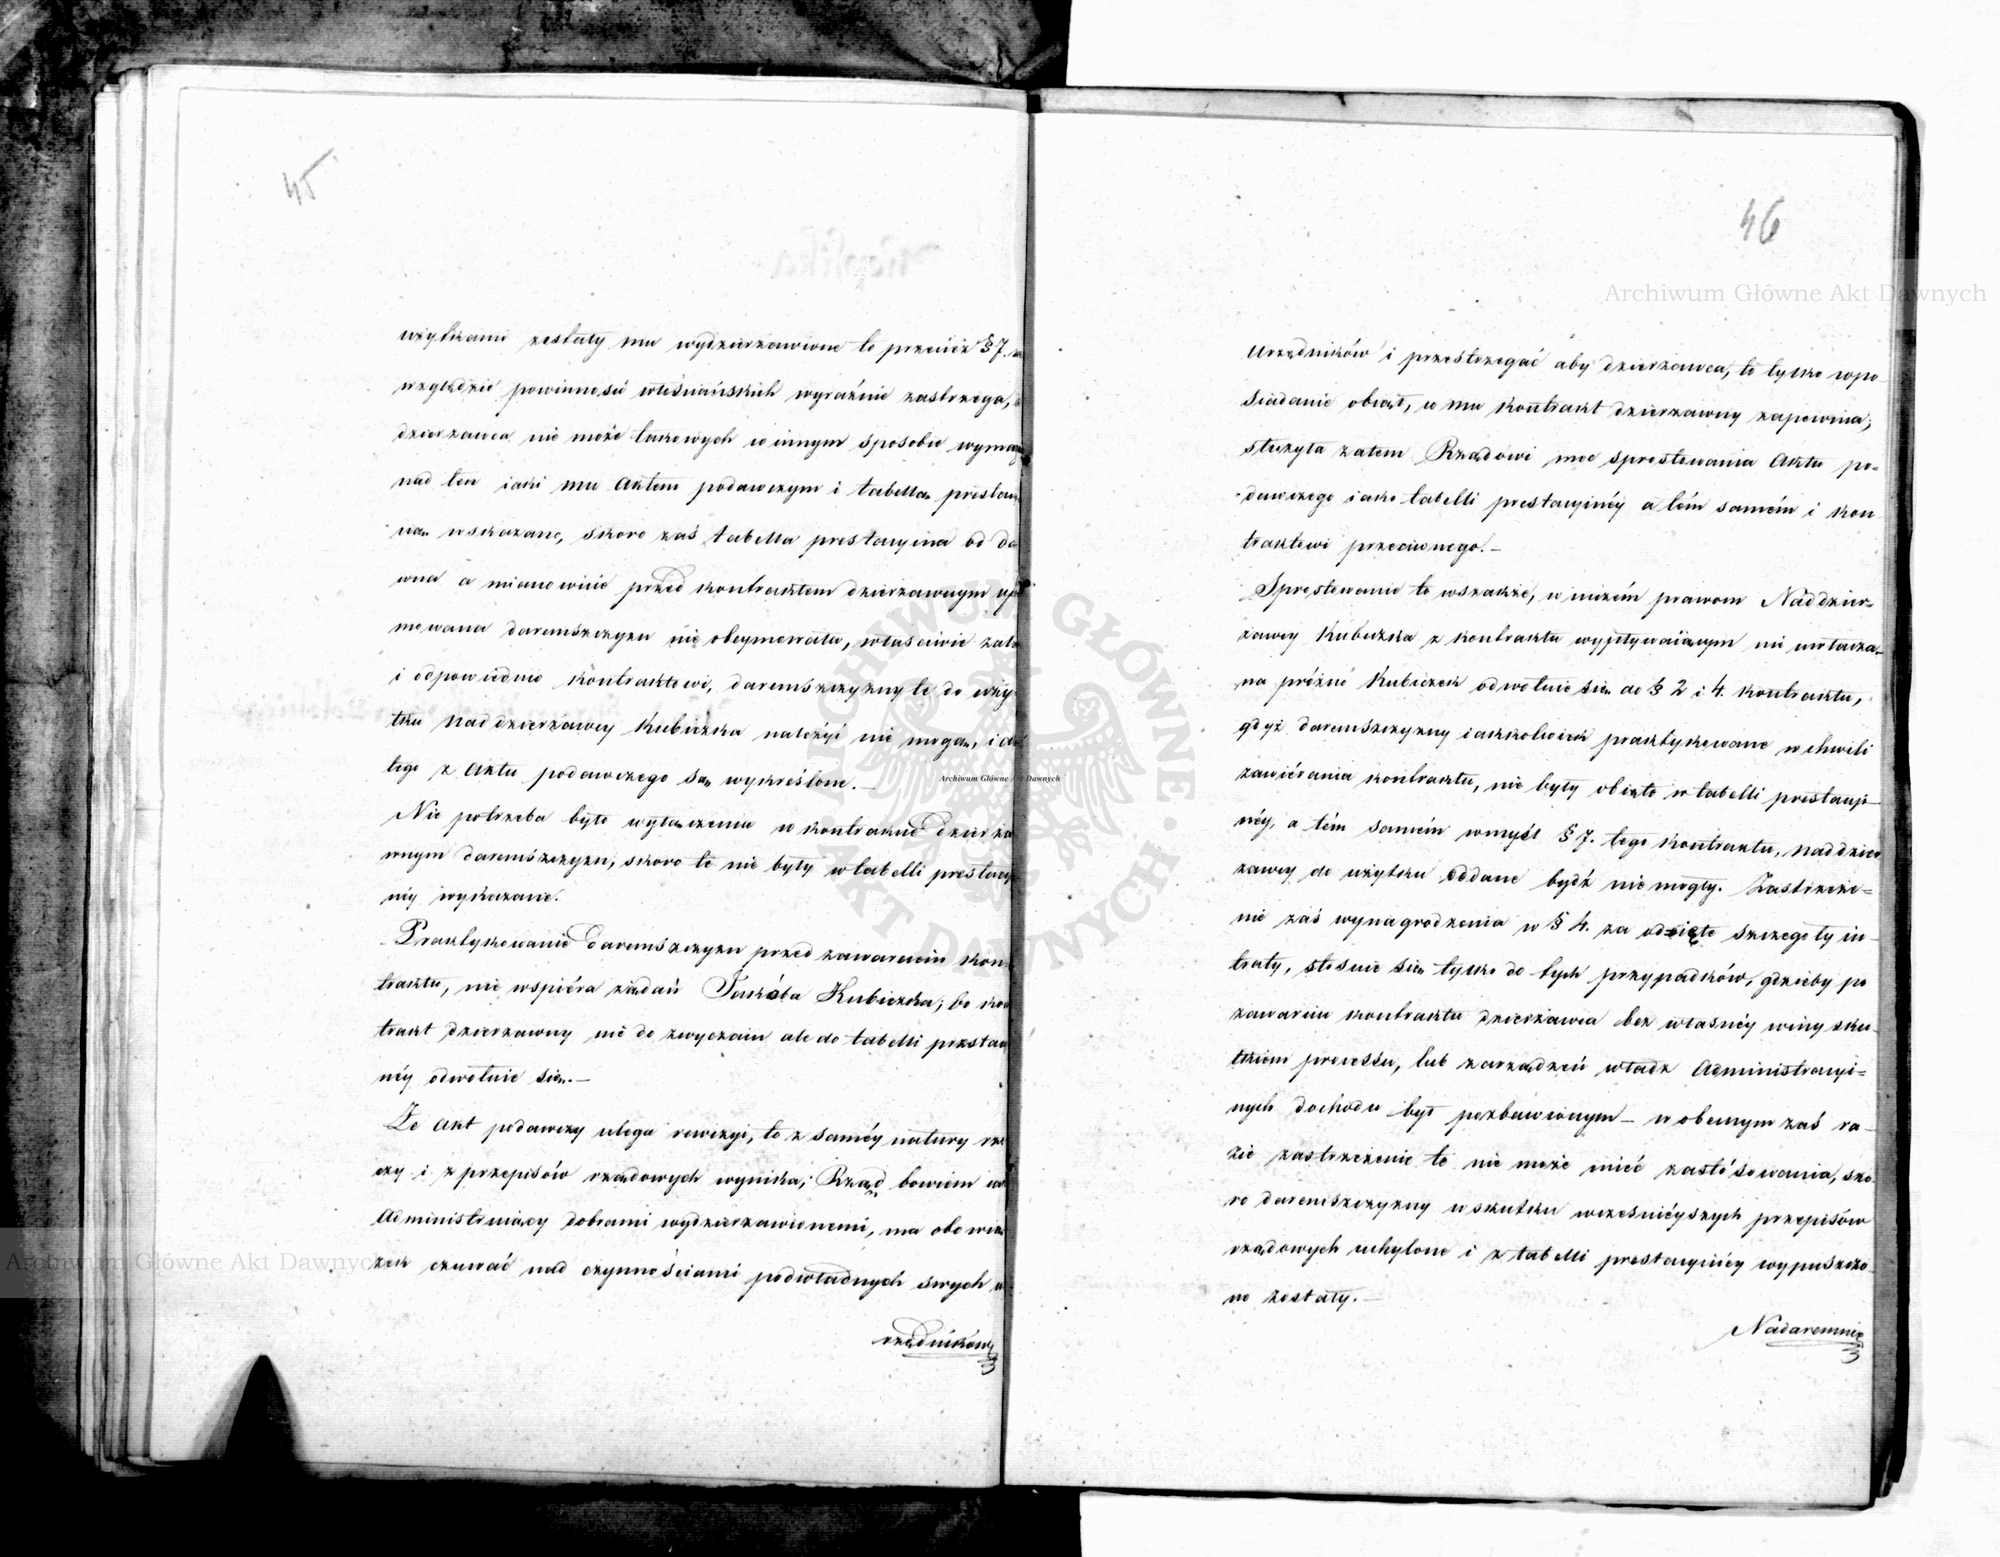 45
użytkami zostały mu wydzierżawione to przecież §7. w
względzie powinności włościańskich wyraźnie zastrzega,
dzierżawca nie może takowych w innym sposobie wymag
nad ten iaki mu Aktem podawczym i tabellą prestacy
ną wskazane, skoro zaś tabella prestacyina od da
wna a mianowicie przed kontraktem dzierżawnym
mowana daremszczyzn nie obeymowała, właściwie zate
i odpowiednie kontraktowi, daremszczyzny te do uży
tku Naddzierżawcy Kubiczka należyć nie mogą, i dla
tego z Aktu podawczego są wykreślone. —
Nie potrzeba było wyłączenia w kontrakcie dzierża
wnym daremszczyzn, skoro te nie były w tabelli prestacy
néy wykazane.
Praktykowanie daremszczyzn przed zawarciem kon
traktu, nie wspiéra żądań Jakóba Kubiczka; bo kon
trakt dzierżawny nie do zwyczaiu ale do tabelli prestacy
néy odwołuie się. —
Że Akt podawczy ulega rewizyi, to z saméy natury rze
czy i z przepisów rządowych wynika; Rząd bowiem
Administruiący dobrami wydzierżawionemi, ma obowią
zek czuwać nad czynnościami podwładnych swych u
rzędników
46
Archiwum Główne Akt Dawnych
Urzędników i przestrzegać aby dzierżawca, to tylko w po
siadanie obiął, co mu kontrakt dzierżawny zapewnia;
służyła zatem Rządowi moc sprostowania Aktu po=
dawczego iako tabelli prestacyinéy a tém samém i kon
traktowi przeciwnego. —
Sprostowanie to wszakże, w niczém prawom Naddzier=
żawcy Kubiczka z kontraktu wypływaiącym nie uwłacza
na próżno Kubiczek odwołuie się do § 2 i 4. kontraktu,
gdyż daremszczyzny iakkolwiek praktykowane w chwili
zawiérania kontraktu, nie były obięte w tabelli prestacyi
néy, a tém samém w myśl §7. tego kontraktu, naddzier
żawcy do użytku oddane bydź nie mogły. Zastrzeże=
nie zaś wynagrodzenia w § 4. za odcięte szczegóły in
traty, stosuie się tylko do tych przypadków, gdzieby po
zawarciu kontraktu dzierżawca bez własnéy winy sku
tkiem processu, lub zarządzeń władz Administracyi=
nych dochodu był pozbawionym — w obecnym zaś ra
zie zastrzeżenie to nie może mieć zastósowania, sko
ro daremszczyzny w skutku wcześniéyszych przepisów
rządowych uchylone i z tabelli prestacyinéy wypuszczo
ne zostały. —
Nadaremnie
Archiwum Główne Akt Dawnych
Archiwum Główne Akt Dawnych
ARCHIWUM GŁÓWNE AKT DAWNYCH